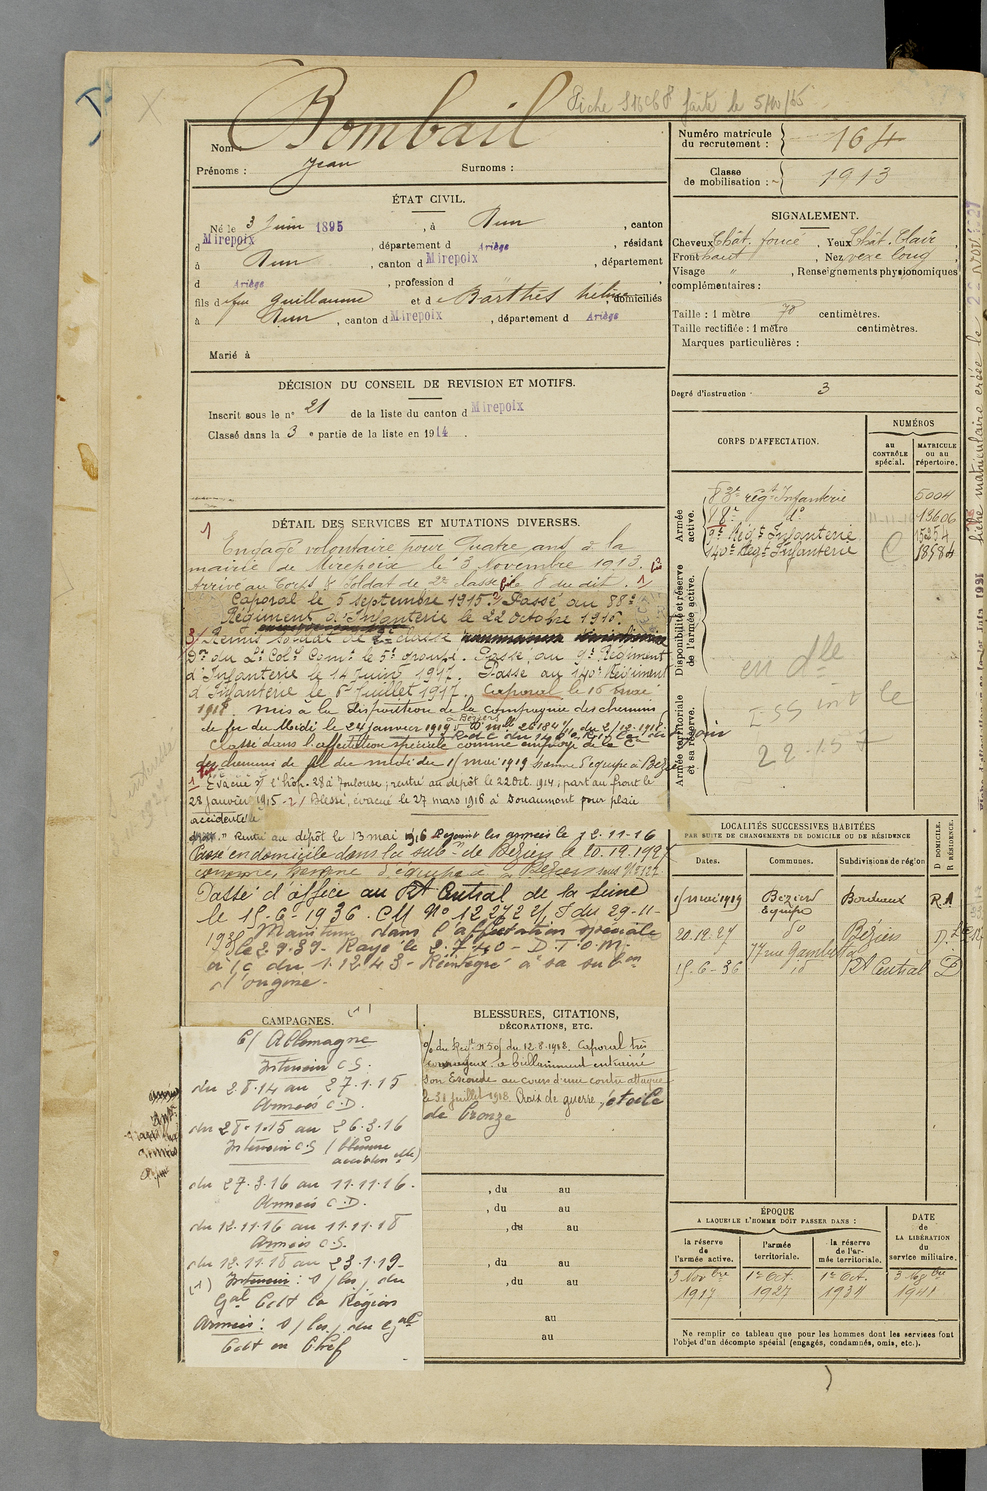 Fiche faite le
Bombail
Nom :
Prénoms : Jean Surnoms :
Numéro matricule du recrutement : 164
Classe de mobilisation : 1913
ÉTAT CIVIL.
Né le 3 Juin 1895, à Dun, canton
d Mirepoix, département d Ariège, résidant
à Dun, canton d Mirepoix, département
d Ariège, profession d
fils d feu Guillaume et d e Barthès domiciliés
à Dun, canton d Mirepoix, département d Ariège
Marié à
SIGNALEMENT.
Cheveux Chât. foncé, Yeux Chât. Clair,
Front haut, Nez vexe long,
Visage " , Renseignements physionomiques
complémentaires :
Taille : 1 mètre 70 centimètres.
Taille rectifiée : 1 mètre centimètres.
Marques particulières :
Degré d'instruction : 3
DÉCISION DU CONSEIL DE REVISION ET MOTIFS.
Inscrit sous le n° 21 de la liste du canton d Mirepoix
Classé dans la 3 e partie de la liste en 1914.
CORPS D'AFFECTATION.
NUMÉROS
au CONTRÔLE spécial.
MATRICULE ou au répertoire.
Armée active.
83e régt Infanterie 5004
18e do 13606
9e Régt Infanterie 15254
140e Régt Infanterie 18584
Disponibilité et réserve de l'armée active.
Armée territoriale et sa réserve.
DÉTAIL DES SERVICES ET MUTATIONS DIVERSES.
Engagé volontaire pour Quatre ans à la
mairie de Mirepoix le 3 Novembre 1913.
Arrivé au Corps & Soldat de 2e classe le 8 du dit.
Caporal le 5 septembre 1915. Passé au 88e
Régiment d'Infanterie le 22 octobre 1916.
3/ Remis soldat de 2e classe
Don du Lt Colel Comt le 5e groupe. Passé au 9e Régiment
d'Infanterie le 14 Juin 1917. Passé au 140e Régiment
d'Infanterie le 1er Juillet 1917. Caporal le 16 mai
1918. mis à la disposition de la Compagnie des chemins
de fer du Midi le 24 janvier 1919
Classé dans l'affectation spéciale comme employé de la Cie
des chemins de fer du midi du 1er mai 1919 homme d'équipe à Béziers
1 Evacué s/ l'hôp. 28 à Toulouse; rentré au dépôt le 22 Oct. 1914; part au front le
28 janvier 1915 - 2/ Blessé, évacué le 27 mars 1916 à Douaumont pour plaie
accidentelle
Rentré au dépôt le 13 mai 1916 Rejoint les armées le 12-11-16
Passé en domicile dans la subon de Béziers le 20.12.1927
comme homme d'équipe à Béziers
Passé d'office au Rt Central de la Seine
le 15-6-1936. CM No 12272 du 29-11-
1938 Maintenu dans l'affectation spéciale
le 2.9.39 - Rayé le 2.7.40 - D.T.O.M.
à/c du 1.12.43 - Réintégré à sa subon
d'origine.
LOCALITÉS SUCCESSIVES HABITÉES
PAR SUITE DE CHANGEMENTS DE DOMICILE OU DE RÉSIDENCE
Dates. Communes. Subdivisions de région D DOMICILE. R RÉSIDENCE.
1er mai 1919 Beziers Equipe Bordeaux R.A
20.12.27 do Béziers D.
15-6-36 77 rue Gambetta Rt Central D
CAMPAGNES.
C/ Allemagne
Intérieur C.S.
du 2.8.14 au 27.1.15
Armées C.D.
du 28.1.15 au 26.3.16
Intérieur C.S (blessure accidentelle)
du 27.3.16 au 11.11.16.
Armées C.D.
du 12.11.16 au 11.11.18
Armées C.S.
du 12.11.18 au 23.1.19
(1) Intérieur : du
Gal Cdt la Région
Armées : du Gal
Cdt en Chef
BLESSURES, CITATIONS, DÉCORATIONS, ETC.
% du Régt n 501 du 12.8.1918. Caporal très
courageux. a brillamment entraîné
son Escouade au cours d'une contre attaque
le 31 juillet 1918. Croix de guerre, étoile
de bronze
, du au
, du au
, du au
, du au
, du au
au
au
ÉPOQUE
A LAQUELLE L'HOMME DOIT PASSER DANS :
DATE de LA LIBÉRATION du service militaire.
la réserve de l'armée active.
l'armée territoriale.
la réserve de l'armée territoriale.
3 Novbre 1917
1er Oct. 1927
1er Oct. 1934
1941
Ne remplir ce tableau que pour les hommes dont les services font
l'objet d'un décompte spécial (engagés, condamnés, omis, etc.).